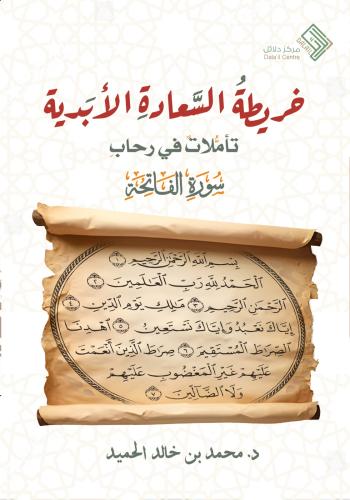 مركز دلائل
Dala'il Centre
خريطةُ السَّعادةِ الأبَدية
تأملات في رحاب
سُورَةِ الفَاتِحَةِ
بِسْمِ اللَّهِ الرَّحْمَٰنِ الرَّحِيمِ ١
الْحَمْدُ لِلَّهِ رَبِّ الْعَالَمِينَ ٢
الرَّحْمَٰنِ الرَّحِيمِ ٣ مَالِكِ يَوْمِ الدِّينِ ٤
إِيَّاكَ نَعْبُدُ وَإِيَّاكَ نَسْتَعِينُ ٥ اهْدِنَا
الصِّرَاطَ الْمُسْتَقِيمَ ٦ صِرَاطَ الَّذِينَ أَنْعَمْتَ
عَلَيْهِمْ غَيْرِ الْمَغْضُوبِ عَلَيْهِمْ
وَلَا الضَّالِّينَ ٧
د. محمد بن خالد الحميد